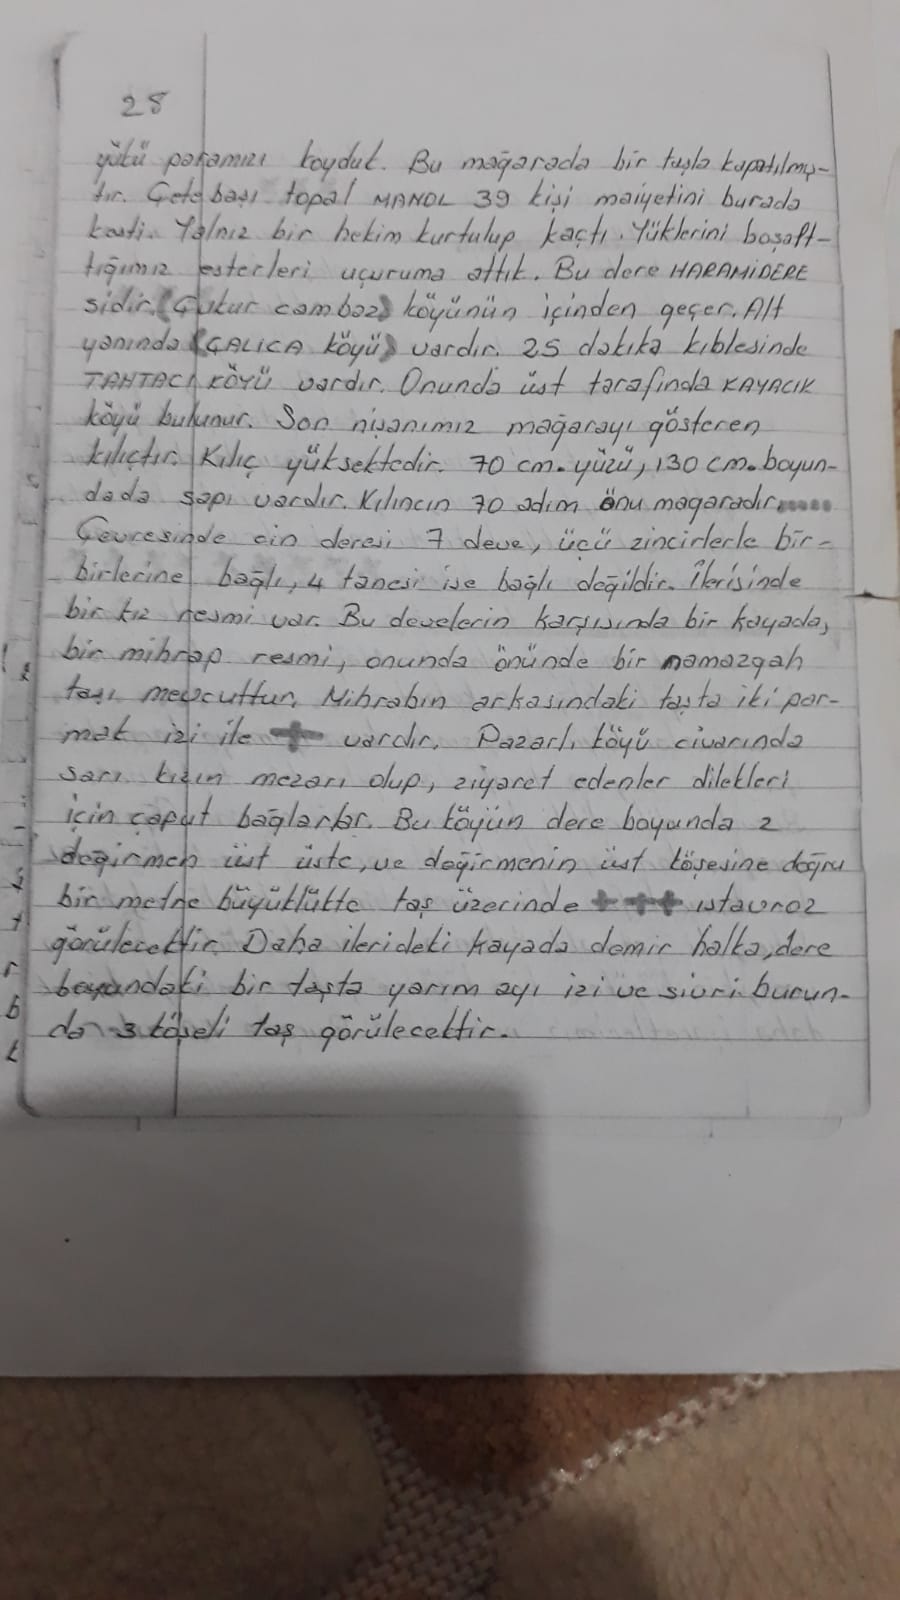 28
yükü paramızı koyduk. Bu mağarada bir taşla kapatılmış-
tır. Çete başı topal MANOL 39 kişi maiyetini burada
kesti. Yalnız bir hekim kurtulup kaçtı. Yüklerini boşalt-
tığımız esterleri uçuruma attık. Bu dere HARAMİDERE
sidir. (Çukur cambaz) köyünün içinden geçer. Alt
yanında (ÇALICA köyü) vardır. 25 dakika kıblesinde
TAHTACI KÖYÜ vardır. Onunda üst tarafında KAYACIK
köyü bulunur. Son nişanımız mağarayı gösteren
kılıçtır. Kılıç yüksektedir. 70 cm. yüzü, 130 cm. boyun-
dada sapı vardır. Kılıncın 70 adım önu magaradır......
Çevresinde cin deresi 7 deve, üçü zincirlerle bir-
birlerine bağlı, 4 tanesi ise bağlı değildir. İlerisinde
bir kız resmi var. Bu develerin karşısında bir kayada,
bir mihrap resmi, onunda önünde bir namazgah
taşı mevcuttur. Mihrabın arkasındaki taşta iki par-
mak izi ile + vardır. Pazarlı köyü civarında
sarı kızın mezarı olup, ziyaret edenler dilekleri
için çaput bağlarlar. Bu köyün dere boyunda 2
değirmen üst üste, ve değirmenin üst köşesine doğru
bir metre büyüklükte taş üzerinde +++ ıstavroz
görülecektir. Daha ilerideki kayada demir halka, dere
boyundaki bir taşta yarım ayı izi ve sivri burun-
da 3 köşeli taş görülecektir.